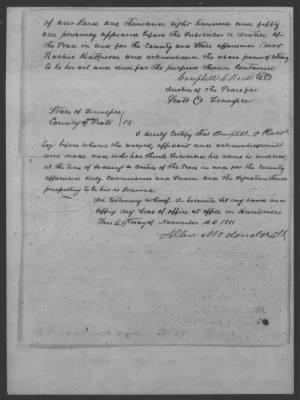 of our Lord one thousand eight hundred and fifty
one personally appeared before the Subscriber a Justice of
the Peace in and for the County and State aforesaid Mrs
Rachel and acknowledged the above power of attorney
to be his act and deed for the purposes therein contained
Campbell C Reed
Justice of the Peace for
Scott Co Tennessee
State of Tennessee
County of Scott
I hereby Certify that Campbell C Reed
Esqr before whom the annexed affidavit and acknowledgements
was made and who has thereto subscribed his name is and was
at the time of so doing a Justice of the Peace in and for the County
aforesaid duly Commissioned and Sworn and the Signature thereto
purporting to be his is Genuine
In testimony whereof I hereunto Set my hand and
affix my Seal of office at office in Huntsville
This day of November A.D. 1851
Allen McDonald Clk